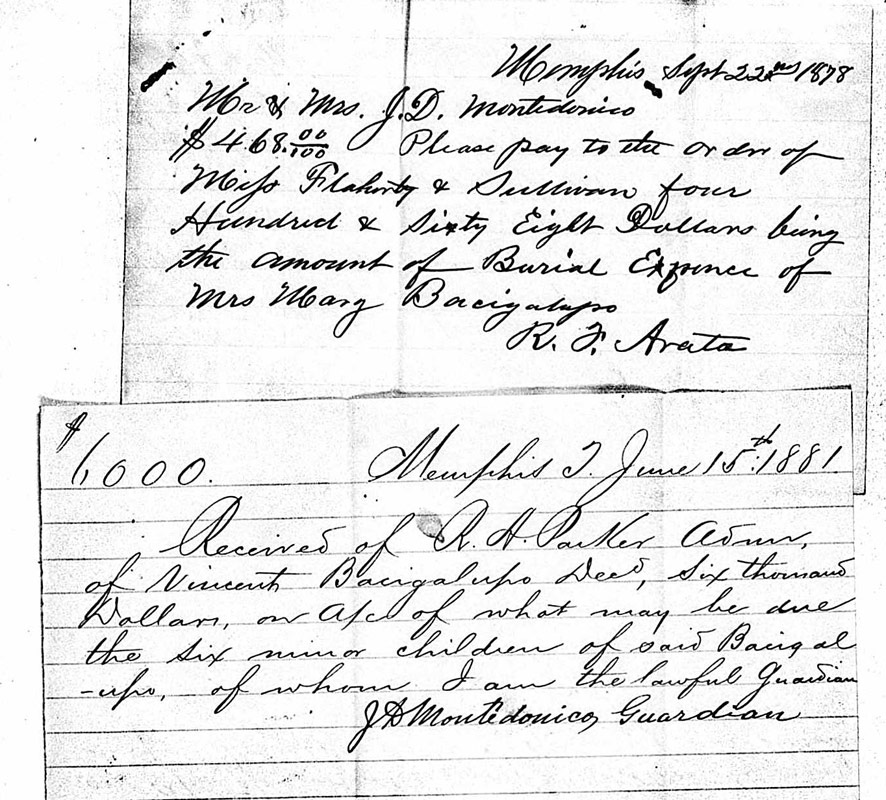 Memphis Sept 22nd 1878
Mr & Mrs. J.D. Montedonico
$468.00/100 Please pay to the order of
Miss Flaherty & Sullivan four
Hundred & Sixty Eight Dollars being
the amount of Burial Expence of
Mrs Mary Bacigalupo
R. F. Arata
$6000. Memphis T. June 15th 1881.
Received of R. H. Parker Admr,
of Vincent Bacigalupo Decd, six thousand
Dollars, on a/c of what may be due
the six minor children of said Bacigal
-upo, of whom I am the lawful Guardian
J D Montedonico, Guardian